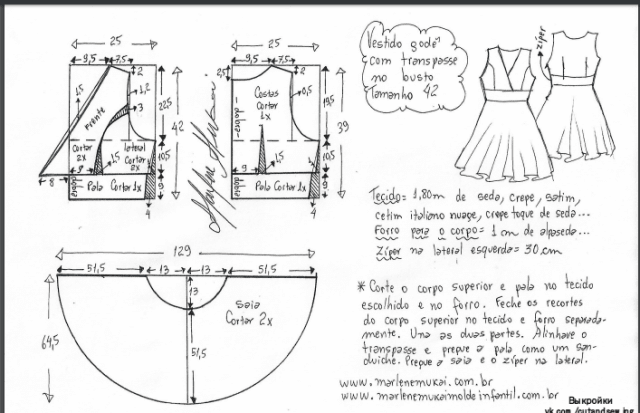 25
9,5
7,5
2
1,2
3
1,5
Frente
22,5
42
Cortar
2x
lateral
Cortar
2x
1,5
10,5
9
9
8
dobra
Pala Cortar 1x
4
25
9,5
7,5
2
0,5
Costas
Cortar
1x
dobra
19,5
39
10,5
9
1,5
9
dobra
Pala Cortar 1x
4
Vestido godê
com transpasse
no busto
Tamanho 42
zíper
129
51,5
13
13
51,5
13
Saia
Cortar 2x
64,5
51,5
Tecido= 1,80m de seda, crepe, satim,
cetim italiano nuage, crepe toque de seda...
Forro para o corpo= 1m de alpaseda...
Zíper na lateral esquerda= 30cm
* Corte o corpo superior e pala no tecido
escolhido e no forro. Feche os recortes
do corpo superior no tecido e forro separada-
mente. Una as duas partes. Alinhave o
transpasse e pregue a pala como um san-
duiche. Pregue a saia e o zíper na lateral.
www.marlenemukai.com.br
www.marlenemukaimoldeinfantil.com.br
Выкройки